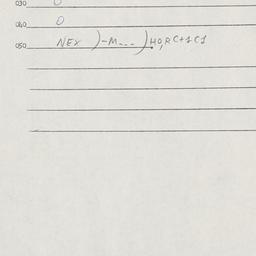 030 0
040 0
050 NEX )-M... )40,RC+1C1